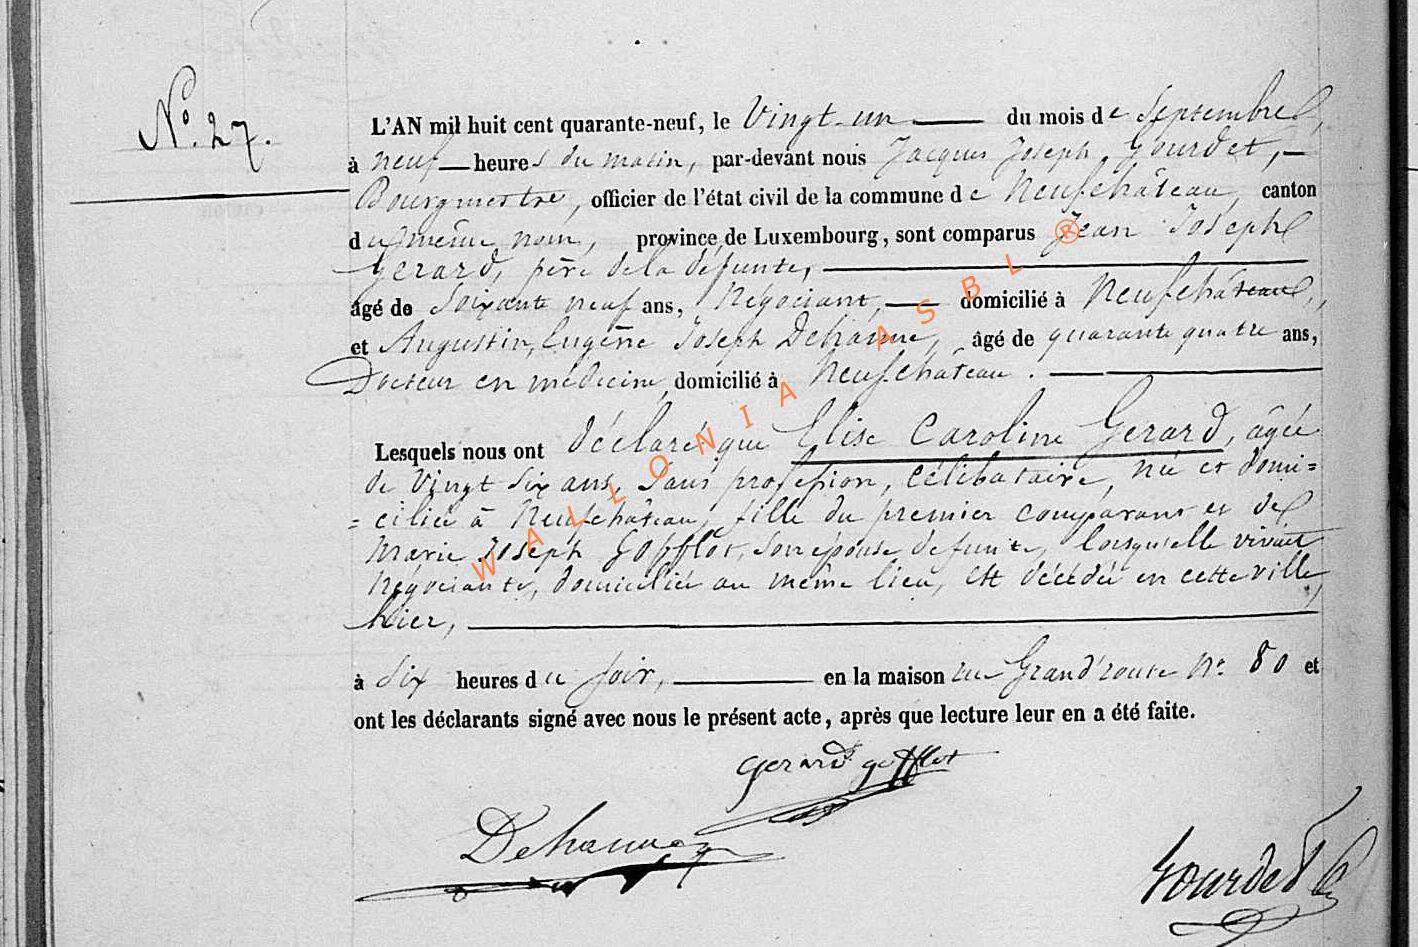 N.º 27.
L'AN mil huit cent quarante-neuf, le Vingt-un du mois de Septembre,
à neuf heures du matin, par-devant nous Jacques Joseph Gourdet,
Bourgmestre, officier de l'état civil de la commune de Neufchâteau, canton
du même nom, province de Luxembourg, sont comparus Jean Joseph
Gerard, père de la défunte,
âgé de soixante neuf ans, Négociant, domicilié à Neufchâteau,
et Augustin, Eugène Joseph Dehanne, âgé de quarante quatre ans,
Docteur en médecine, domicilié à Neufchâteau.
Lesquels nous ont déclaré que Elise Caroline Gerard, âgée
de Vingt six ans, sans profession, célibataire, née et domi=
=ciliée à Neufchâteau, fille du premier comparant et de
Marie Joseph Gofflot, son épouse défunte, lorsqu'elle vivait
négociante, domiciliée au même lieu, est décédée en cette ville
hier,
à six heures du soir, en la maison rue Grand'route N.º 80 et
ont les déclarants signé avec nous le présent acte, après que lecture leur en a été faite.
gerard gofflot
Dehanne
Gourdet
® WALLONIA ASBL